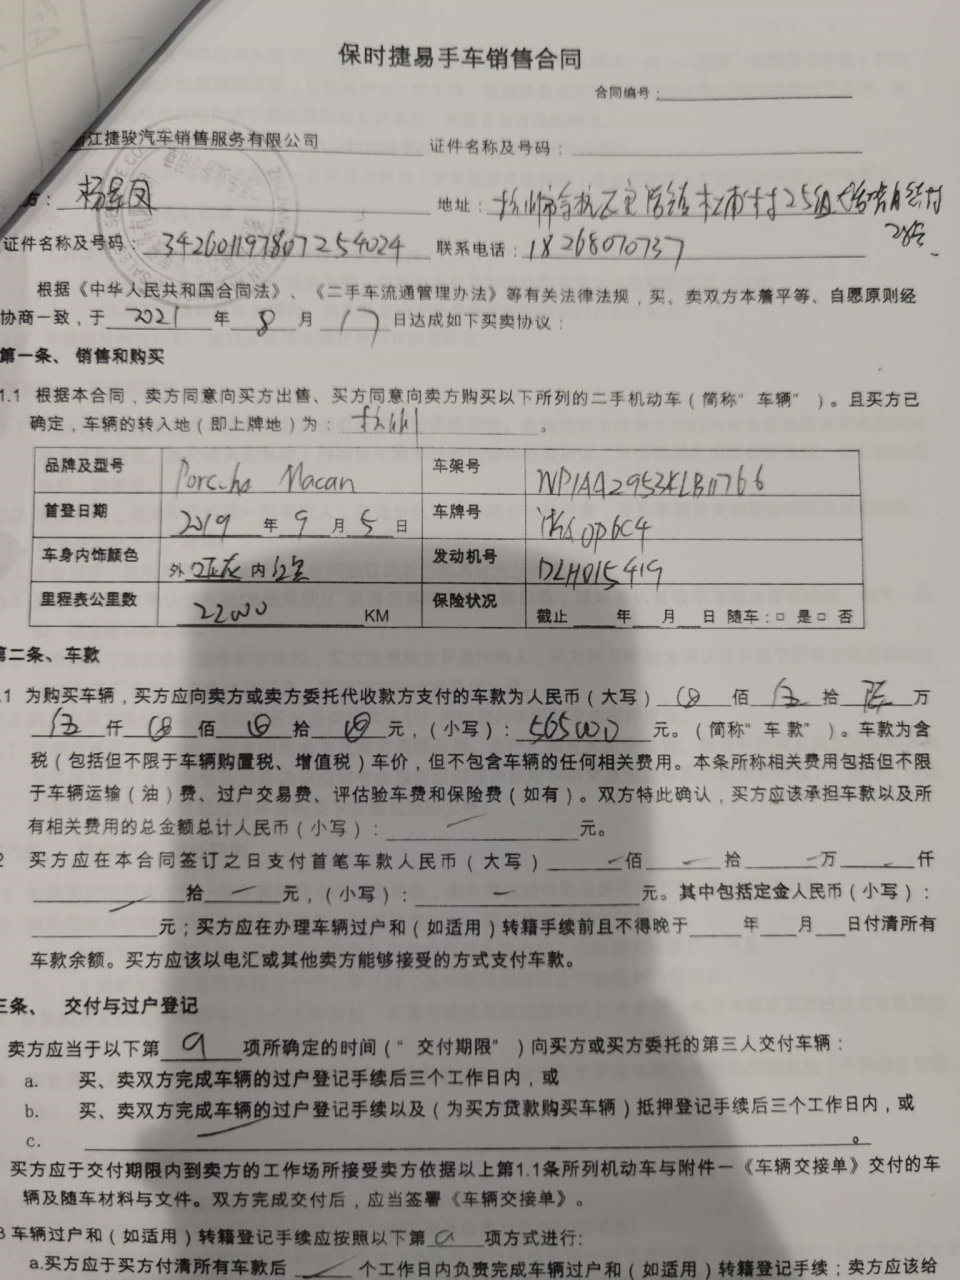 保时捷易手车销售合同
合同编号：
江捷骏汽车销售服务有限公司 证件名称及号码：
方： 杨 凤 地址： 杭州市余杭区 镇 村25组
28号
证件名称及号码： 342601197807254024 联系电话：18268070737
根据《中华人民共和国合同法》、《二手车流通管理办法》等有关法律法规，买、卖双方本着平等、自愿原则经
协商一致，于 2021 年 8 月 17 日达成如下买卖协议：
第一条、 销售和购买
1.1 根据本合同，卖方同意向买方出售、买方同意向卖方购买以下所列的二手机动车（简称“车辆”）。且买方已
确定，车辆的转入地（即上牌地）为： 杭州 。
品牌及型号 Porsche Macan 车架号 WP1AA2953KLB11766
首登日期 2019 年 9 月 5 日 车牌号 浙A0P6C4
车身内饰颜色 外 内 发动机号 DLH015419
里程表公里数 22000 KM 保险状况 截止 年 月 日 随车：□ 是 □ 否
第二条、车款
.1 为购买车辆，买方应向卖方或卖方委托代收款方支付的车款为人民币（大写） 佰 伍 拾 陆 万
伍 仟 佰 拾 元，（小写）： 565000 元。（简称“车款”）。车款为含
税（包括但不限于车辆购置税、增值税）车价，但不包含车辆的任何相关费用。本条所称相关费用包括但不限
于车辆运输（油）费、过户交易费、评估验车费和保险费（如有）。双方特此确认，买方应该承担车款以及所
有相关费用的总金额总计人民币（小写）： 元。
2 买方应在本合同签订之日支付首笔车款人民币（大写） 佰 拾 万 仟
拾 元，（小写）： 元。其中包括定金人民币（小写）：
元；买方应在办理车辆过户和（如适用）转籍手续前且不得晚于 年 月 日付清所有
车款余额。买方应该以电汇或其他卖方能够接受的方式支付车款。
三条、 交付与过户登记
卖方应当于以下第 a 项所确定的时间（“交付期限”）向买方或买方委托的第三人交付车辆：
a. 买、卖双方完成车辆的过户登记手续后三个工作日内，或
b. 买、卖双方完成车辆的过户登记手续以及（为买方贷款购买车辆）抵押登记手续后三个工作日内，或
c. 。
买方应于交付期限内到卖方的工作场所接受卖方依据以上第1.1条所列机动车与附件一《车辆交接单》交付的车
辆及随车材料与文件。双方完成交付后，应当签署《车辆交接单》。
3 车辆过户和（如适用）转籍登记手续应按照以下第 a 项方式进行：
a.买方应于买方付清所有车款后 个工作日内负责完成车辆过户和（如适用）转籍登记手续；卖方应该给